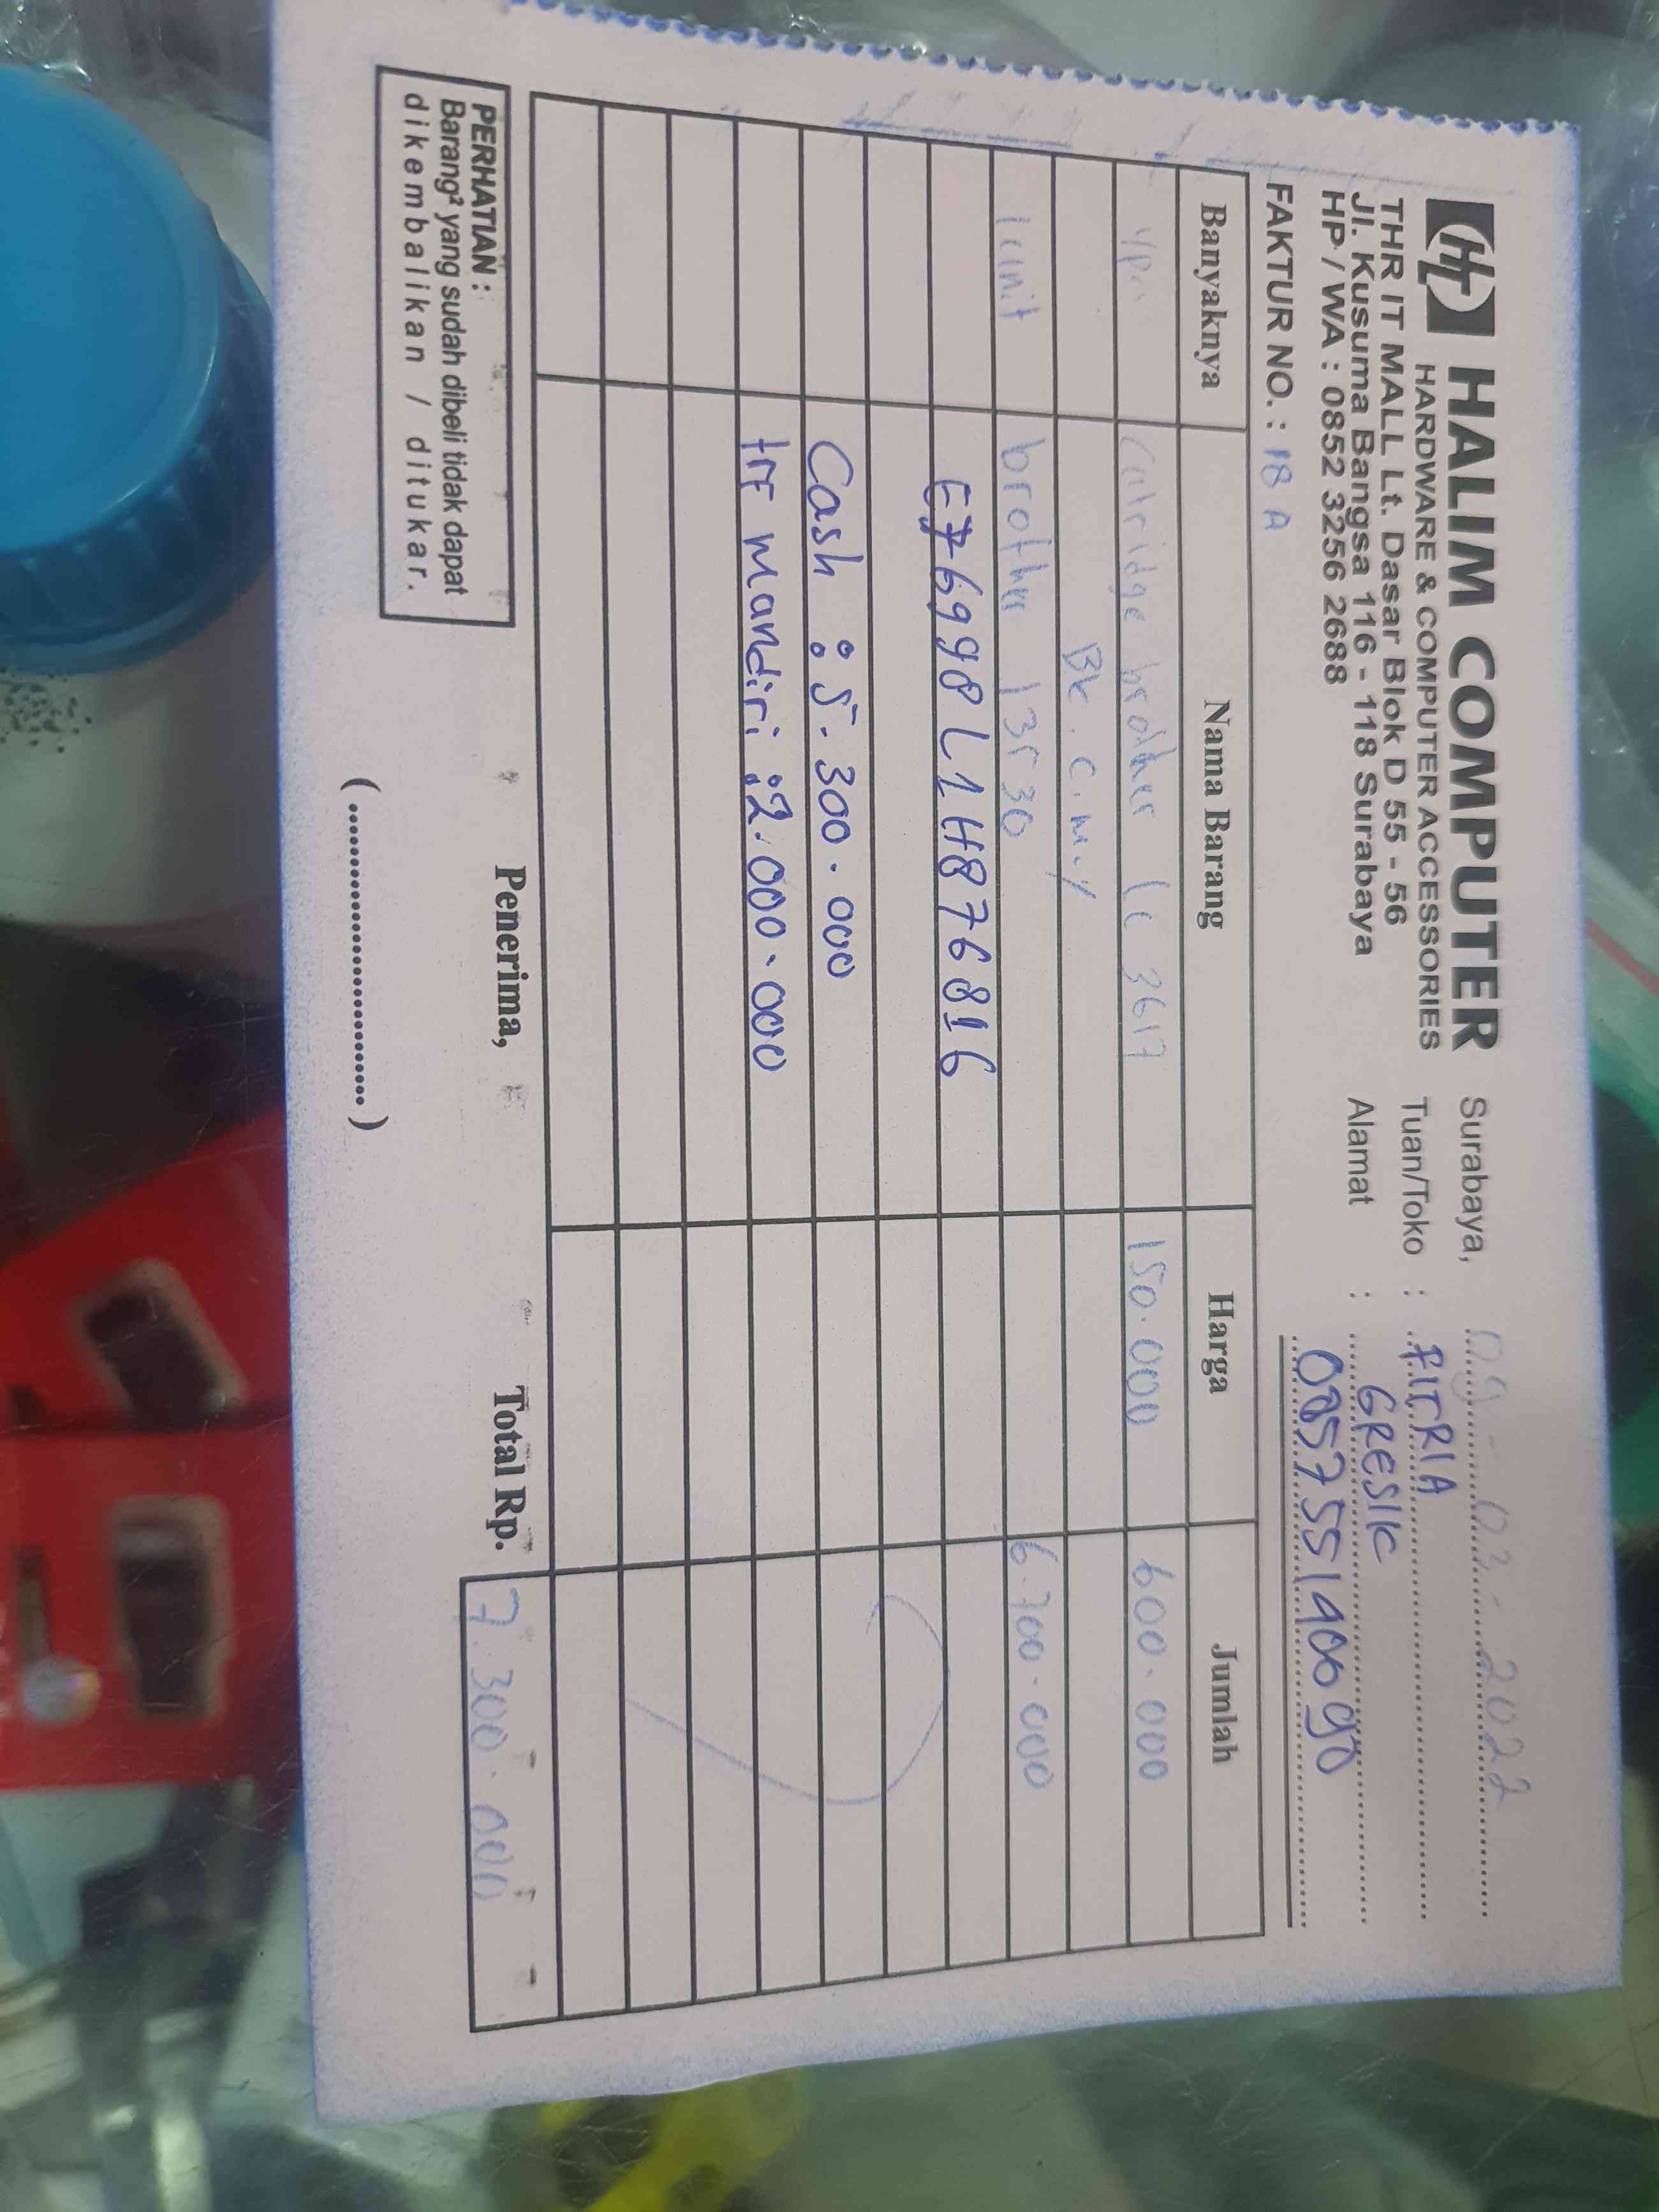 HALIM COMPUTER
HARDWARE & COMPUTER ACCESSORIES
THR IT MALL Lt. Dasar Blok D 55 - 56
Jl. Kusuma Bangsa 116 - 118 Surabaya
HP / WA : 0852 3256 2688
FAKTUR NO. : 18 A
Surabaya, 2022
Tuan/Toko : FITRIA
Alamat : GRESIK
Banyaknya Nama Barang Harga Jumlah
catridge brother lc 3617 150.000 600.000
BK . C . m . y
1 unit 6.700.000
E76998L1H876816
Cash : 5.300.000
trF mandiri : 2.000.000
Penerima,
Total Rp. 7.300.000
PERHATIAN :
Barang² yang sudah dibeli tidak dapat
dikembalikan / ditukar.